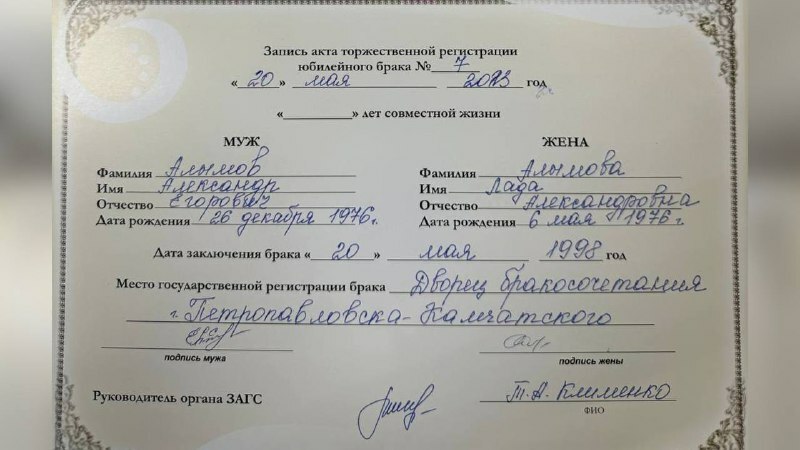 Запись акта торжественной регистрации
юбилейного брака № 7
« 20 » мая 2023 год
«__________» лет совместной жизни
МУЖ
Фамилия Алымов
Имя Александр
Отчество Егорович
Дата рождения 26 декабря 1976г.
ЖЕНА
Фамилия Алымова
Имя Лада
Отчество Александровна
Дата рождения 6 мая 1976г.
Дата заключения брака « 20 » мая 1998 год
Место государственной регистрации брака Дворец бракосочетания
г. Петропавловска-Камчатского
подпись мужа
подпись жены
Руководитель органа ЗАГС Т.А. Клименко
ФИО